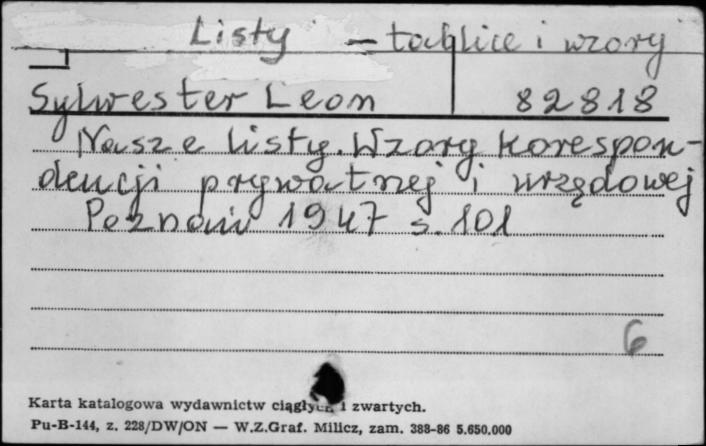 Listy – tablice i wzory
Sylwester Leon 82818
Nasze listy. Wzory korespon-
dencji prywatnej i urzędowej
Poznań 1947 s. 101
6
Karta katalogowa wydawnictw ciągłych i zwartych.
Pu-B-144, z. 228/DW/ON — W.Z.Graf. Milicz, zam. 388-86 5.650.000